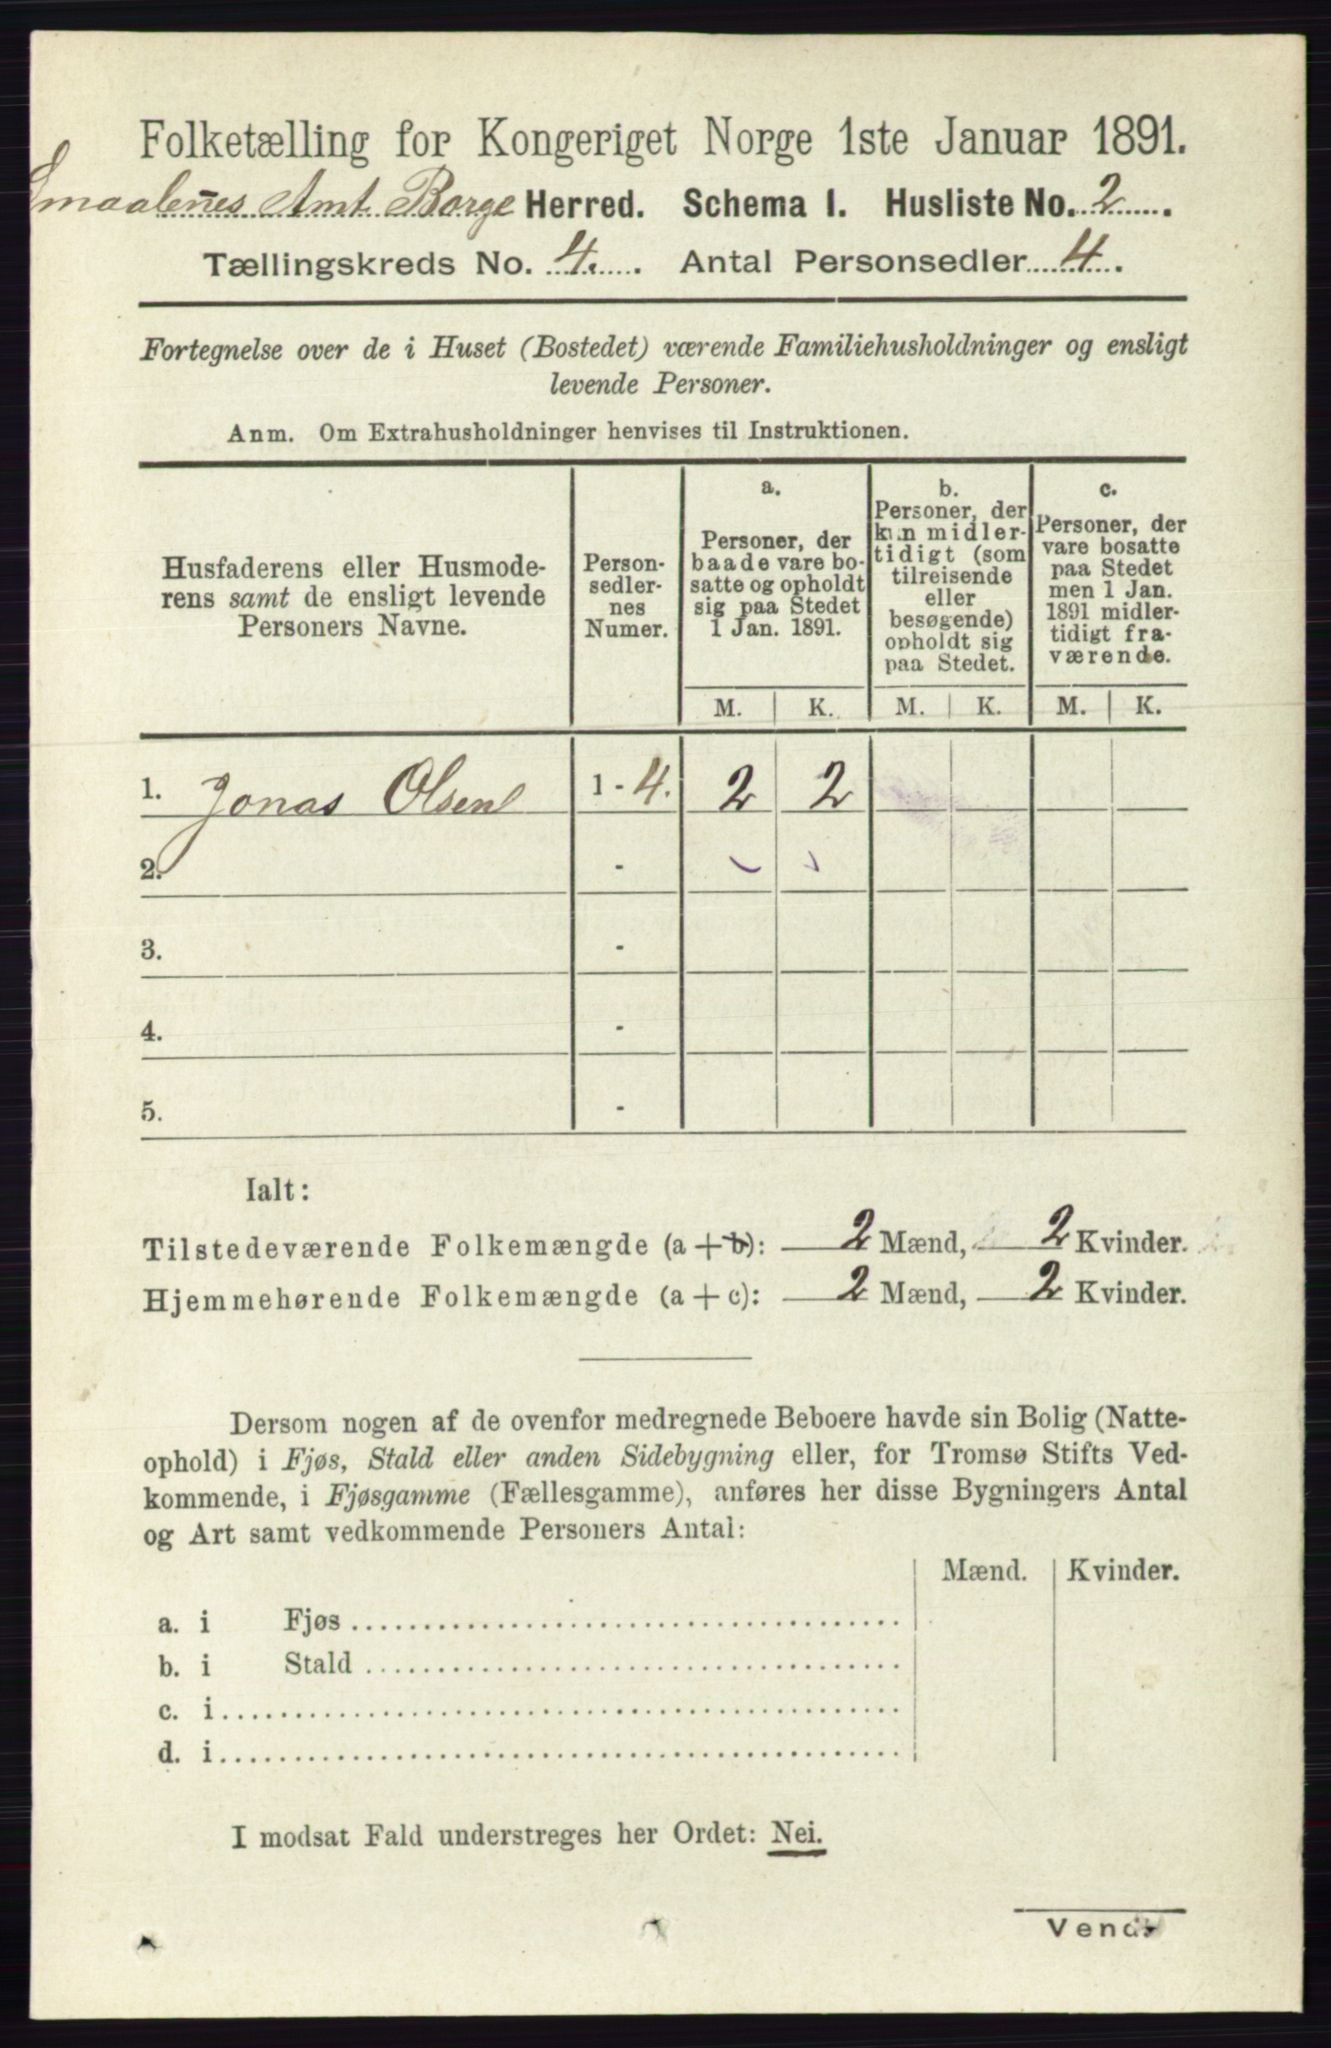 Folketælling for Kongeriget Norge 1ste Januar 1891.
Smaalenes Amt Borge Herred. Schema I. Husliste No. 2
Tællingskreds No. 4. Antal Personsedler 4.
Fortegnelse over de i Huset (Bostedet) værende Familiehusholdninger og ensligt
levende Personer.
Anm. Om Extrahusholdninger henvises til Instruktionen.
Husfaderens eller Husmode-
rens samt de ensligt levende
Personers Navne.
Person-
sedler-
nes
Numer.
a.
Personer, der
baade vare bo-
satte og opholdt
sig paa Stedet
1 Jan. 1891.
b.
Personer, der
kun midler-
tidigt (som
tilreisende
eller
besøgende)
opholdt sig
paa Stedet.
c.
Personer, der
vare bosatte
paa Stedet
men 1 Jan.
1891 midler-
tidigt fra-
værende.
M. K. M. K. M. K.
1. Jonas Olsen 1 - 4. 2 2
2. -
3. -
4. -
5. -
Ialt:
Tilstedeværende Folkemængde (a + b): 2 Mænd, 2 Kvinder.
Hjemmehørende Folkemængde (a + c): 2 Mænd, 2 Kvinder.
Dersom nogen af de ovenfor medregnede Beboere havde sin Bolig (Natte-
ophold) i Fjøs, Stald eller anden Sidebygning eller, for Tromsø Stifts Ved-
kommende, i Fjøsgamme (Fællesgamme), anføres her disse Bygningers Antal
og Art samt vedkommende Personers Antal:
Mænd. Kvinder.
a. i Fjøs
b. i Stald
c. i
d. i
I modsat Fald understreges her Ordet: Nei.
Vend.